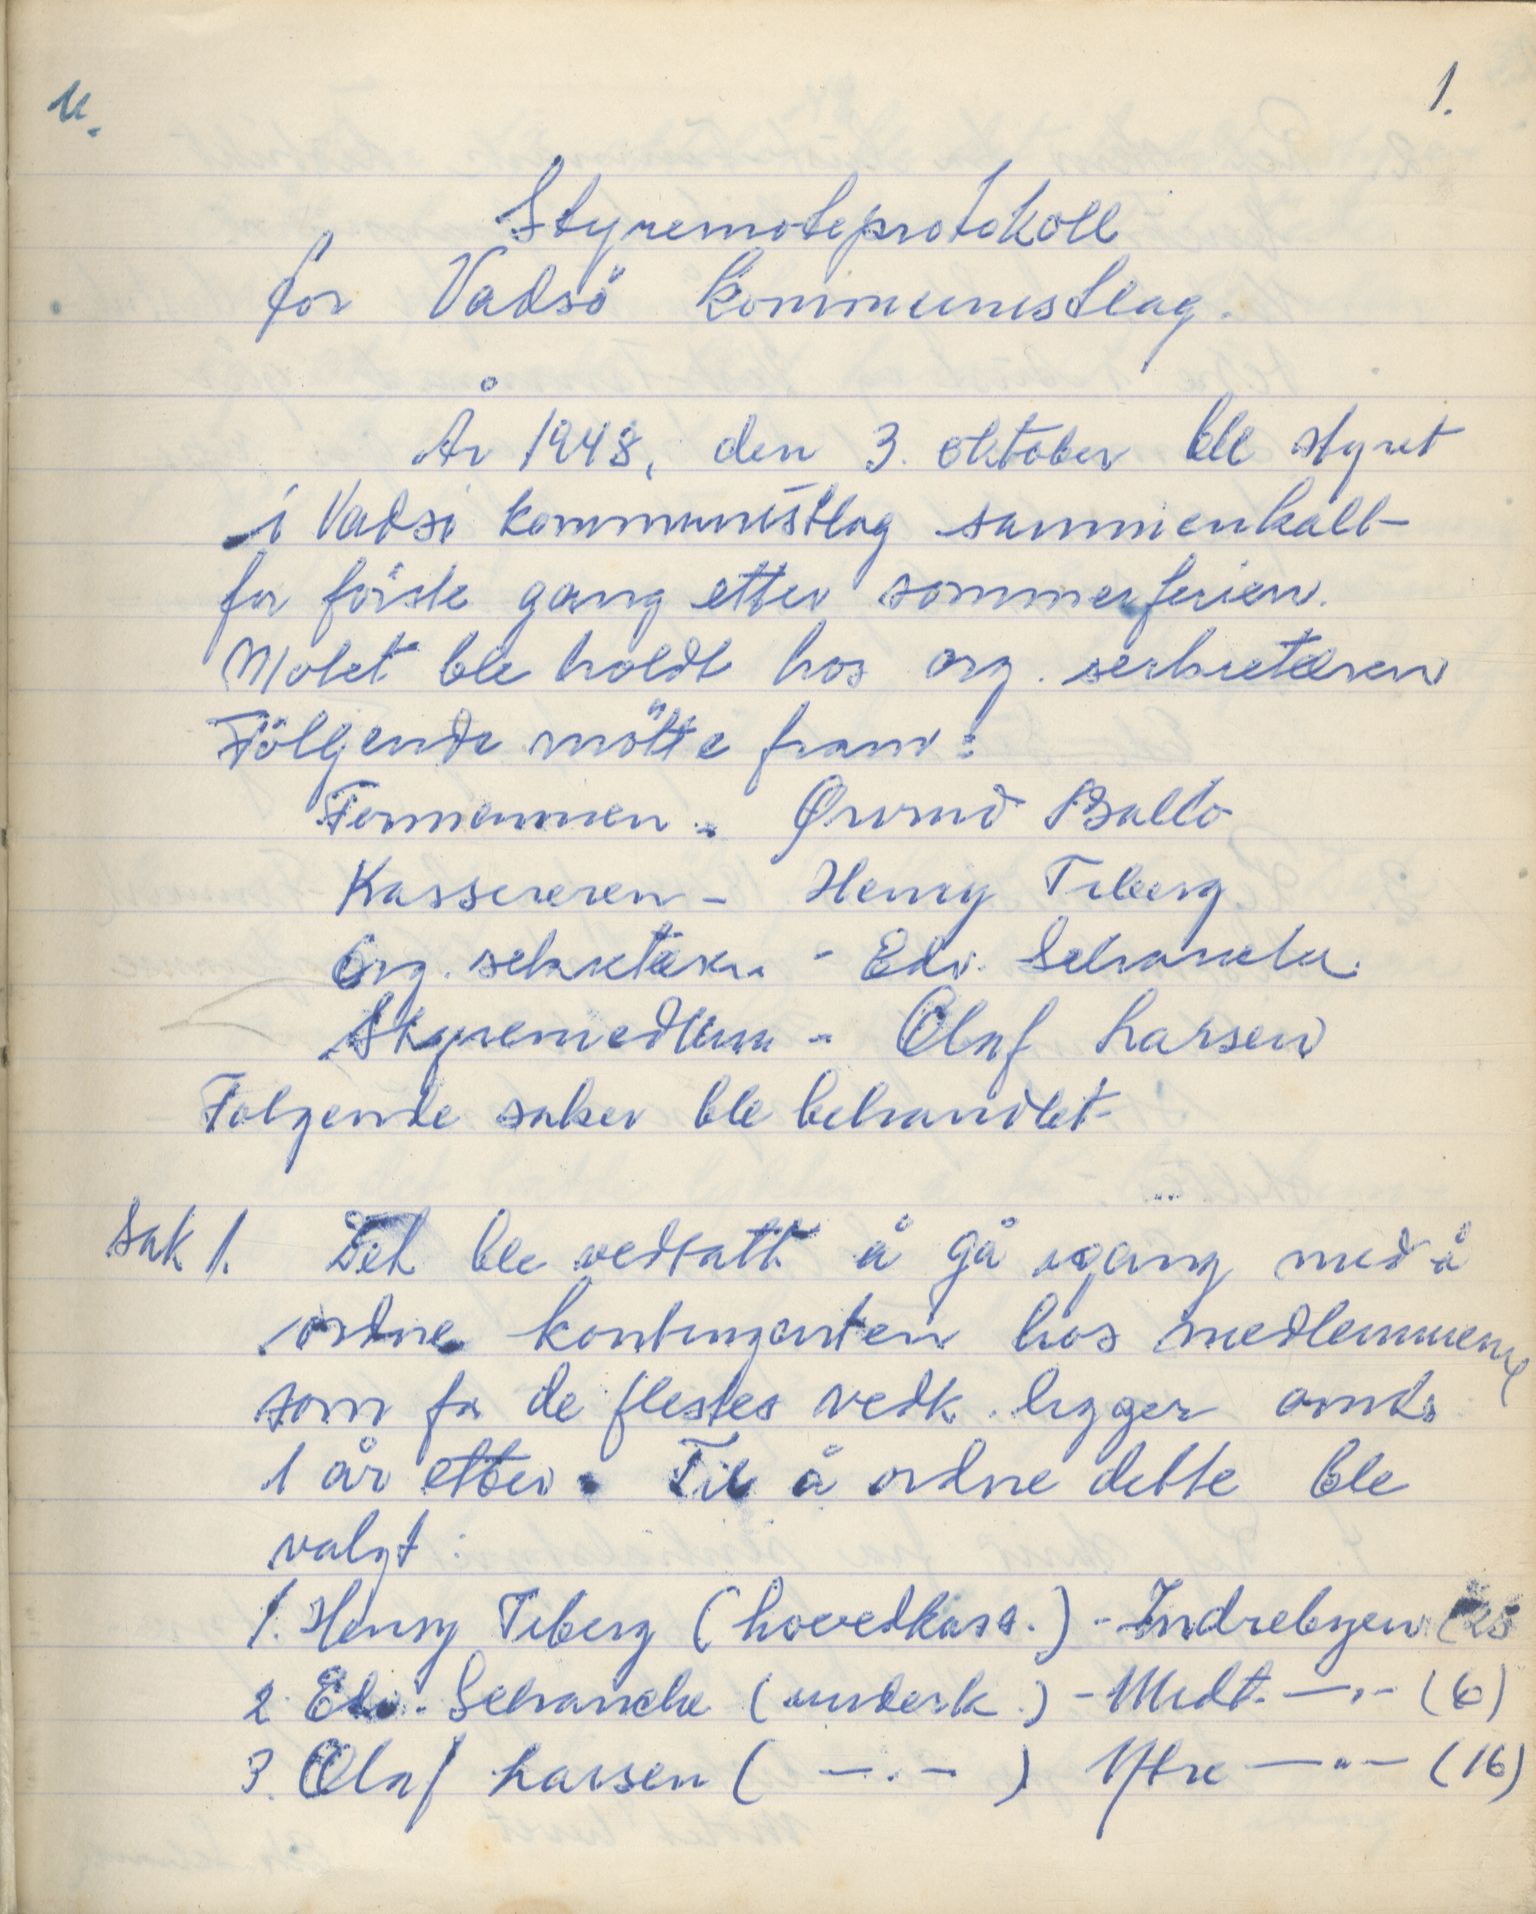 1.
Styremøteprotokoll
for Vadsö kommunistlag.
År 1948, den 3. oktober ble styret
i Vadsö kommunistlag sammenkalt
for förste gang etter sommerferien.
Motet ble holdt hos org. sekretæren
Fölgende mötte fram:
Formannen - Øivind Balto
Kassereren - Henry Tiberg
Org. sekretæren - Edv. Schancke.
Styremedlem - Olaf Larsen
Folgende saker ble behandlet
Sak 1. Det ble vedtatt å gå igång med å
ordne kontingenten hos medlemmene
som for de flestes vedk. ligger omkr.
1 år etter. Til å ordne dette ble
valgt:
1. Henry Tiberg (hovedkass.) - Indrebyen
2. Edv. Schancke (underk.) - Midt- —〃— (6)
3. Olaf Larsen ( —〃— ) Ytre —〃— (16)